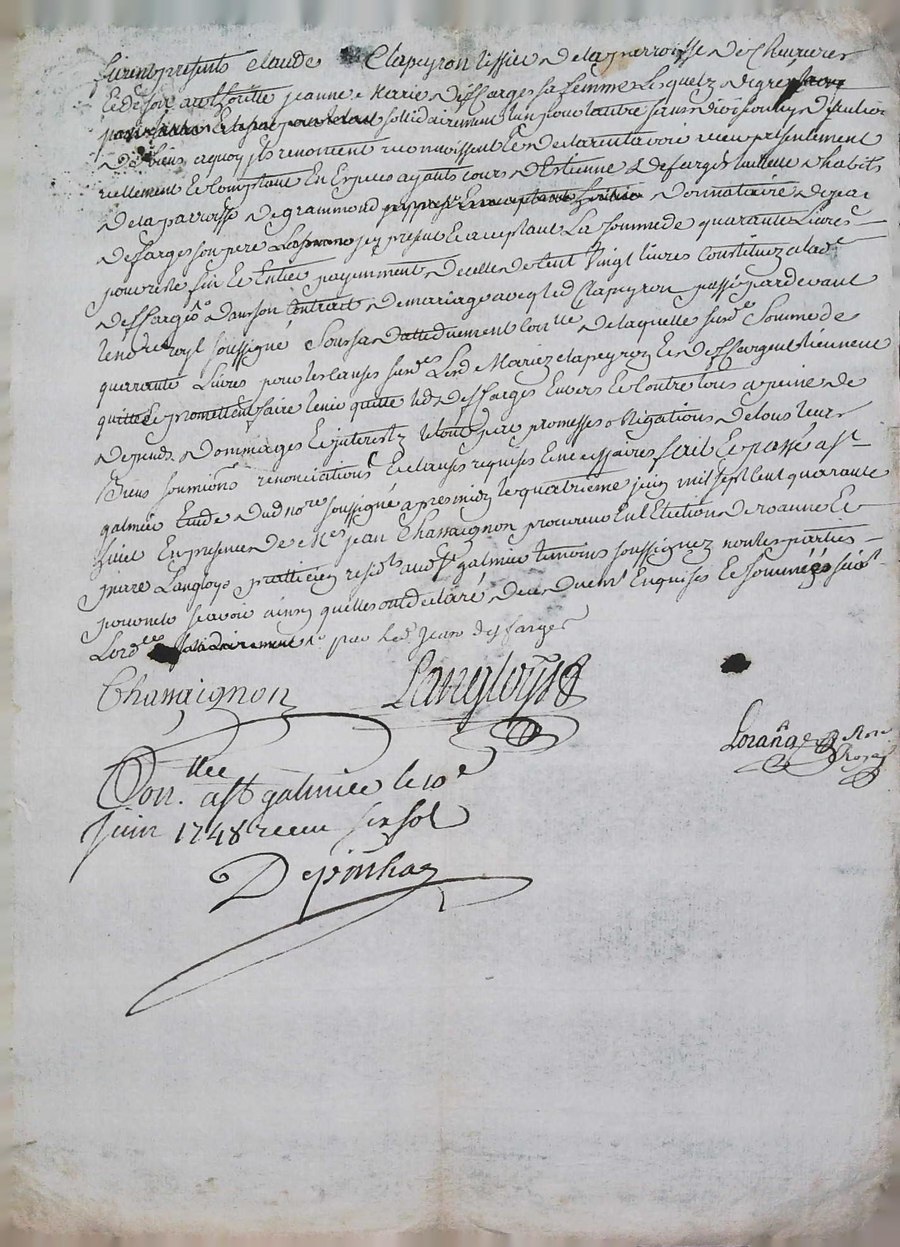 furent presents claude Clapeyron tessier de la parroisse de Cheurieres
et de son authoritte jeanne Marie deffarges sa femme lesquelz de gre
sollidairement l'un pour lautre sans division ny discution
de biens aquoy ils renoncent reconnoissent et declarent avoir receu presentement
reellement et comptant en especes ayants cours d'Estienne deffarges habit
de la parroisse de grammond donnataire de jean
deffarges son pere icy present et aceptant la somme de quarante livres
pour reste fin et entier payemment de celle de cent vingt livres constituez a lad
deffarges dans son contrait de mariage avec led Clapeyron passé pardevant
le no.re royl soussigné sous sa datte duement con.llé de laquelle sus.de somme de
quarante livres pour les causes sus.des Lesd Mariez clapeyron et deffarge tiennent
quitte et promettent faire tenir quitte led deffarges envers et contre tous a peine de
depends dommages et interestz le tout par promesses obligations de tous leurs
biens soumions renonciations et clauses requises et necessaires fait et passé a st
galmier étude dud no.re soussigné apres midy le quatrieme juin mil sept cent quarante
huict en presence de Me jean Chassaignon procureur en l'Election de roanne et
Langloys pratticien resid.t aud st galmier temoins soussignez non les parties
pour ne scavoir ainsy quelles ont declaré de ce duem.t enquises et sommées
solidairement par led jean deffarges
Chassaignon Langloys
Lorange
Con.llée a st galmier le 10e
juin 1748 receu six sol
Depinhac